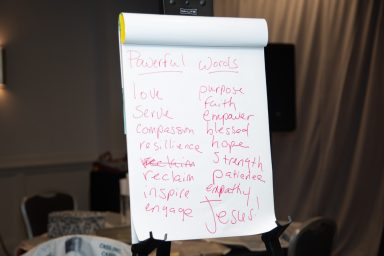 Powerful Words
love
Serve
compassion
resillience
reclaim
reclaim
inspire
engage
purpose
faith
empower
blessed
hope
strength
patience
empathy
Jesus!